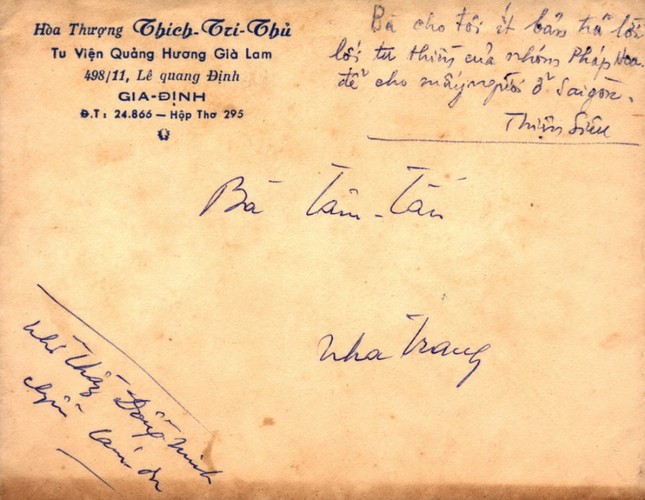 Hòa Thượng Thích-Trí-Thủ
Tu Viện Quảng Hương Già Lam
498/11, Lê quang Định
GIA-ĐỊNH
Đ.T: 24.866 — Hộp Thơ 295
Bà cho tôi ít bản trả lời
lối tu thiền của nhóm Pháp Hoa
để cho mấy người ở Saigon.
Thiện Siêu
Bà Tâm-Tấn
Nha Trang
Nhờ Thầy Đổng Minh
chuyển cám ơn